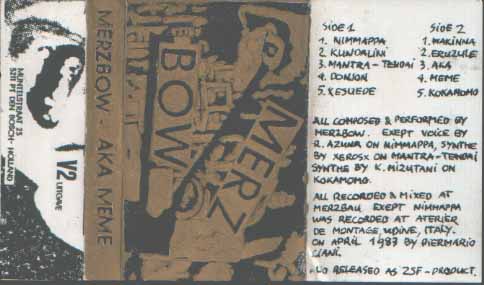 MUNTELSTRAAT 23
5211 PT DEN BOSCH - HOLLAND
V2
UITGAVE
MERZBOW - AKA MEME
MERZ
BOW
SIDE 1
1. NIMMAPPA
2. KUNDALINI
3. MANTRA-TENDAI
4. DONJON
5. YESUEDE
SIDE 2
1. MAKINNA
2. ERUZULE
3. AKA
4. MEME
5. KOKAMOMO
ALL COMPOSED & PERFORMED BY
MERZBOW. EXEPT VOICE BY
R. AZUNA ON NIMMAPPA, SYNTHE
BY XEROSX ON MANTRA-TENDAI
SYNTHE BY K. MIZUTANI ON
KOKAMOMO.
ALL RECORDED & MIXED AT
MERZBAU. EXEPT NIMMAPPA
WAS RECORDED AT ATERIER
DE MONTAGE, UDINE, ITALY.
ON APRIL 1987 BY PIERMARIO
CIANI.
RELEASED AS ZSF-PRODUCT.